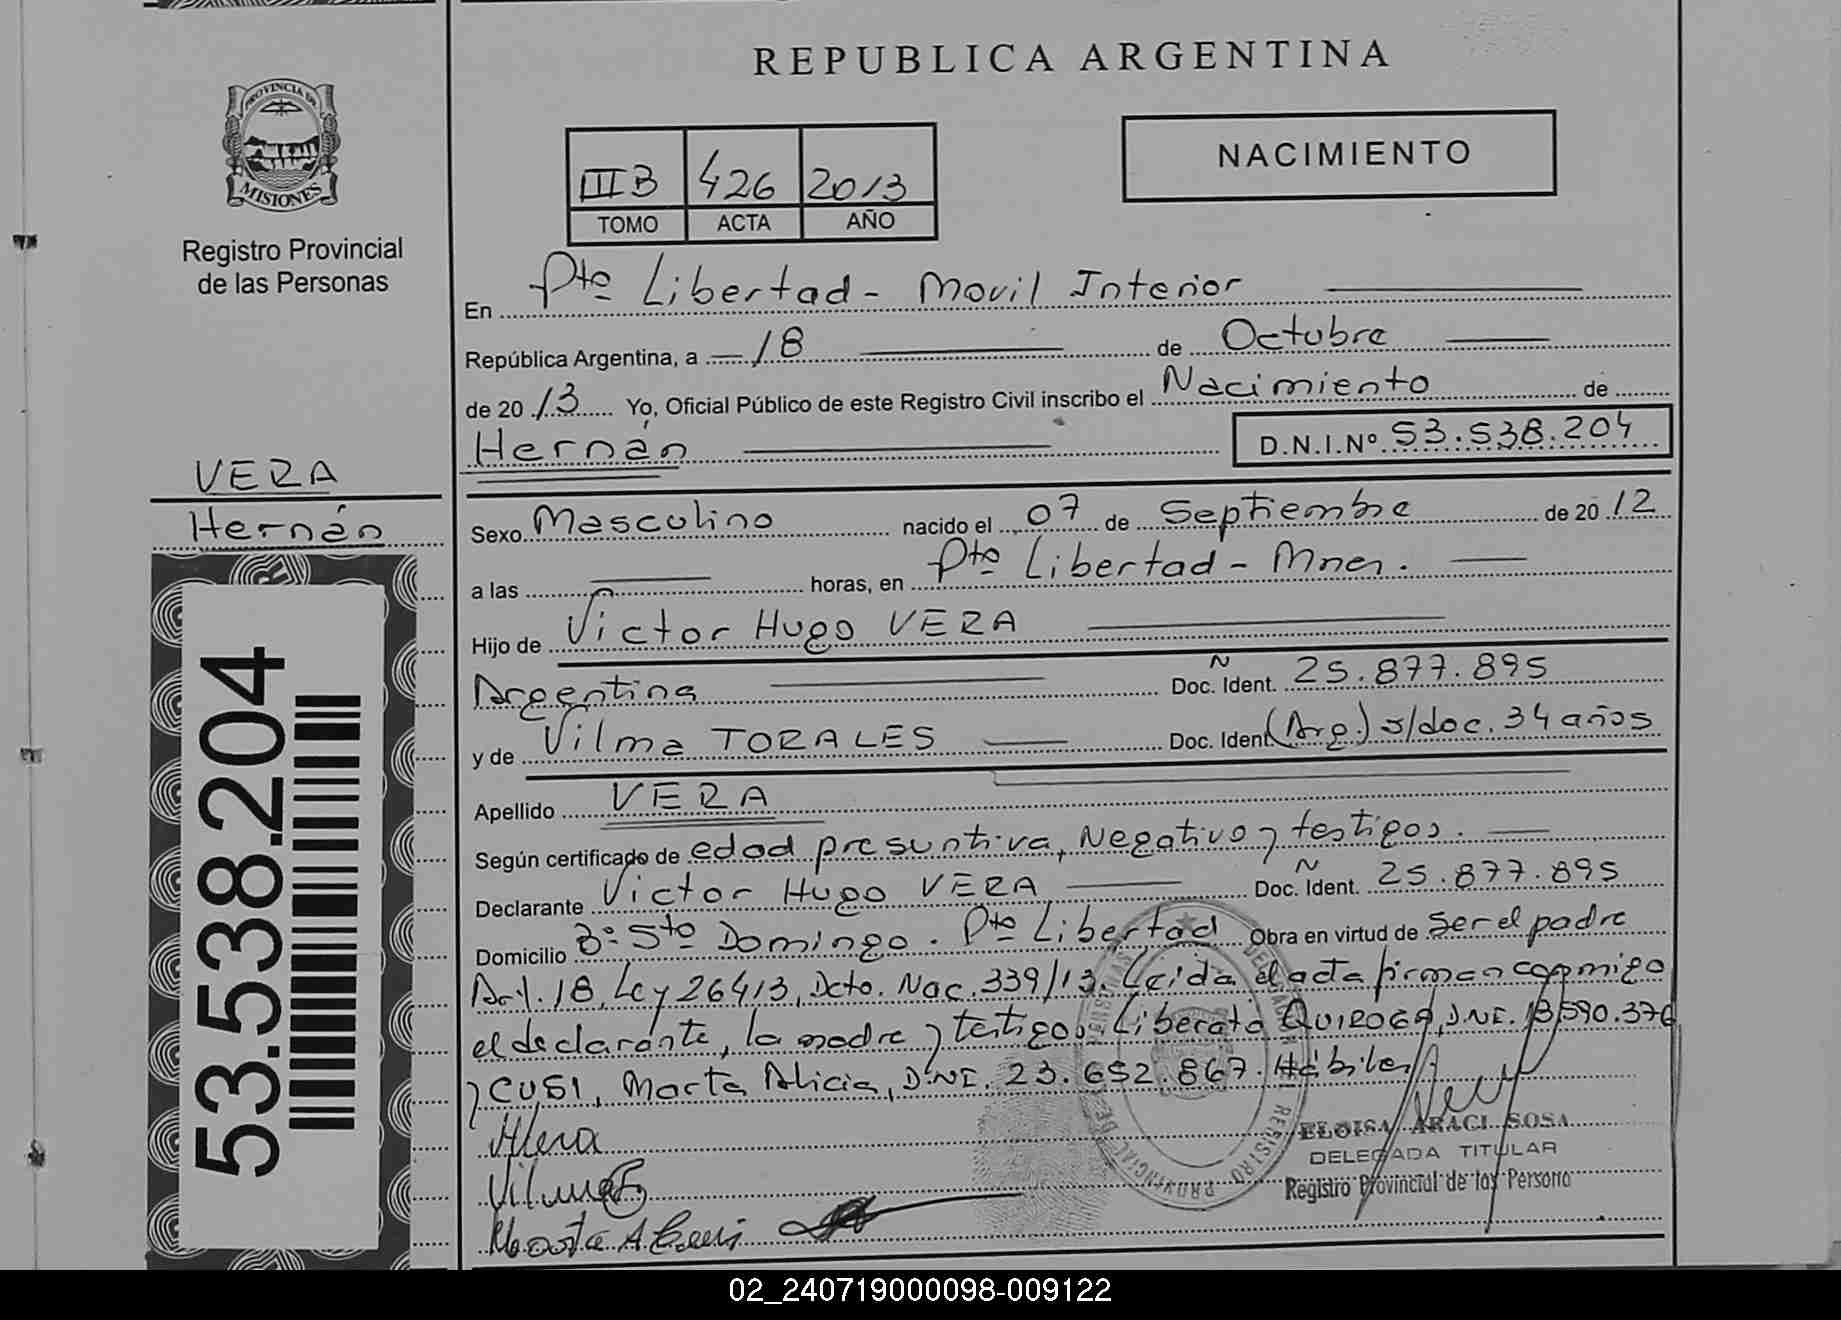 REPUBLICA ARGENTINA
PROVINCIA DE
MISIONES
Registro Provincial
de las Personas
NACIMIENTO
III B 426 2013
TOMO ACTA AÑO
En Pto Libertad - Movil Interior
República Argentina, a 18 de Octubre
de 20 13 Yo, Oficial Público de este Registro Civil inscribo el Nacimiento de
Hernán D.N.I.Nº 53.538.204
VERA
Hernán
Sexo Masculino nacido el 07 de Septiembre de 20 12
a las horas, en Pto Libertad - Mnes.
Hijo de Victor Hugo VERA
Argentina Doc. Ident. Ñ 25.877.895
y de Vilma TORALES Doc. Ident. (Arg.) s/doc. 34 años
Apellido VERA
Según certificado de edad presuntiva, Negativo y testigos.
Declarante Victor Hugo VERA Doc. Ident. Ñ 25.877.895
Domicilio Bº Sto Domingo. Pto Libertad Obra en virtud de ser el padre
Art. 18, Ley 26413, Dcto. Nac. 339/13. Leida el acta firman conmigo
el declarante, la madre y testigos: Liberata QUIROGA, DNI. 13.590.376
y CUSI, Marta Alicia, DNI. 23.652.867. Hábiles
53.538.204
Vilma
ELOISA ARACI SOSA
DELEGADA TITULAR
Registro Provincial de las Persona
02_240719000098-009122